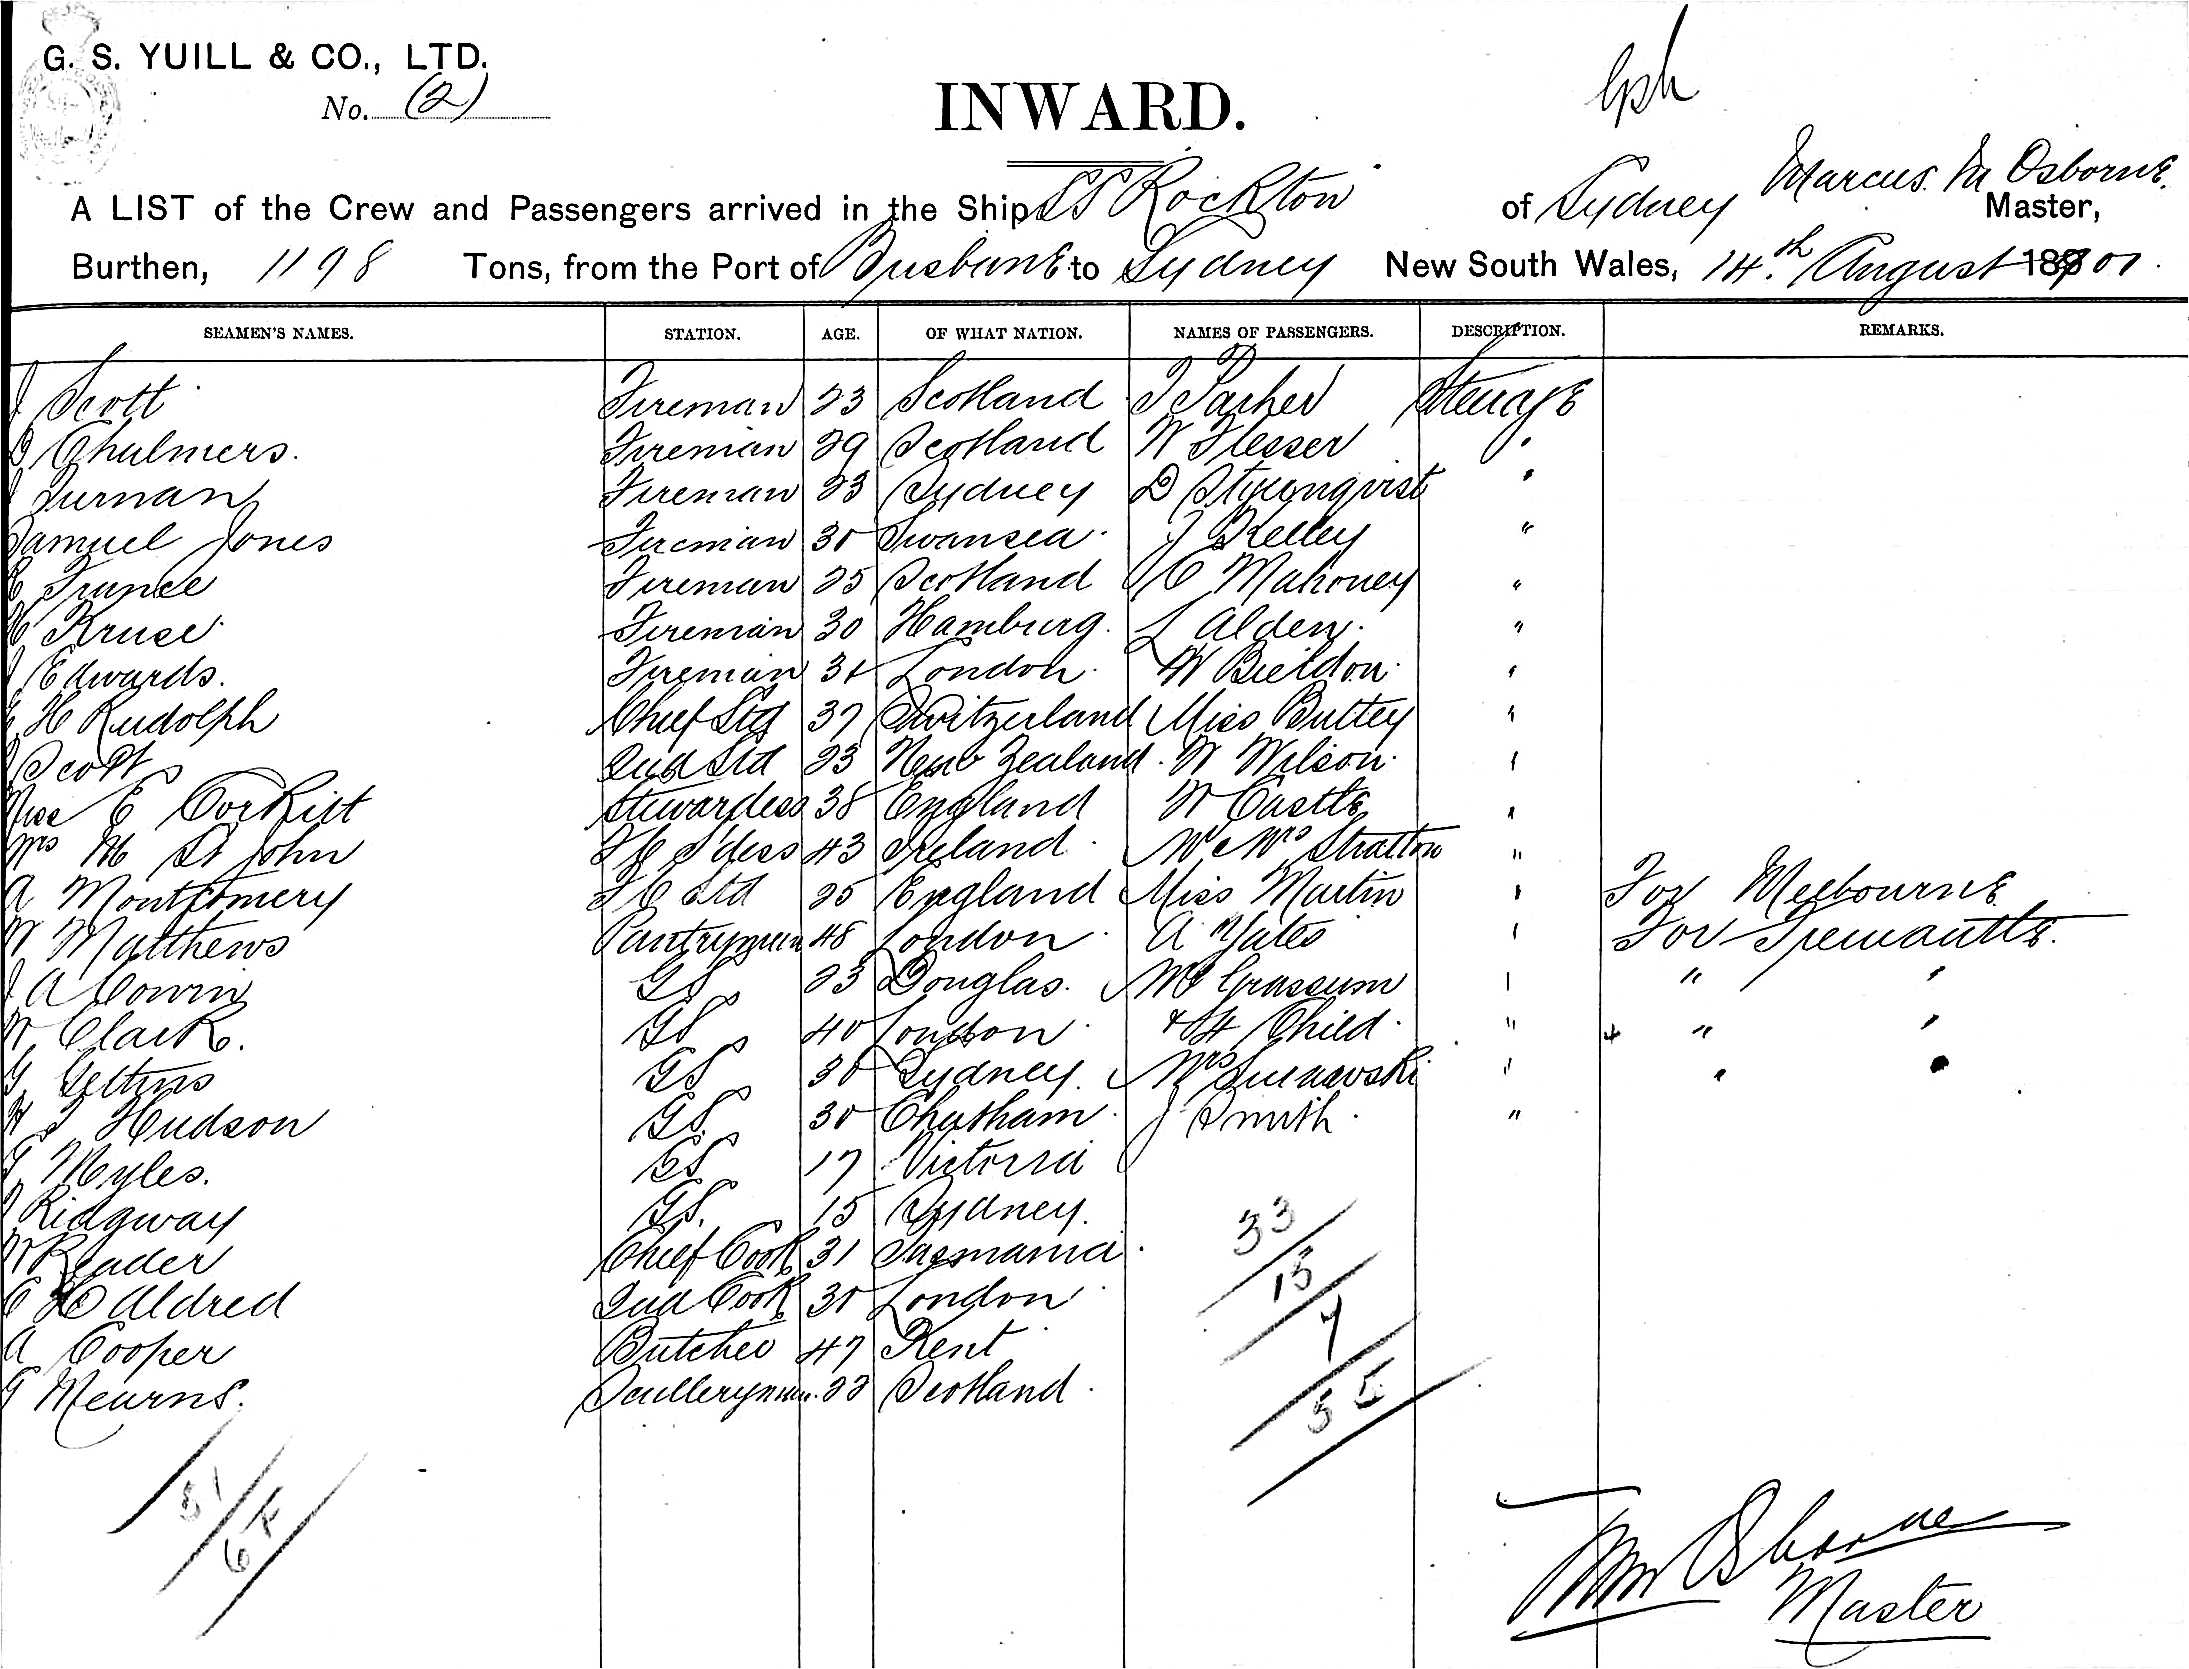 G. S. YUILL & CO., LTD.
No. (2)
INWARD.
A LIST of the Crew and Passengers arrived in the Ship SS Rockton of Sydney Marcus. M Osborne. Master,
Burthen, 1198 Tons, from the Port of Brisbane to Sydney New South Wales, 14.th August 1901.
SEAMEN'S NAMES. STATION. AGE. OF WHAT NATION. NAMES OF PASSENGERS. DESCRIPTION. REMARKS.
J Scott Fireman 23 Scotland Steerage
Chalmers. Fireman 29 Scotland W Flesser "
Fireman 23 Sydney D "
Samuel Jones Fireman 30 Swansea. J Kelley "
Fireman 25 Scotland C Mahoney "
Kruse Fireman 30 Hamburg. L Alden. "
J Edwards. Fireman 31 London. W "
H Rudolph Chief Std 37 Switzerland Miss Buttey "
J Scott 2nd Std 23 New Zealand. W Wilson. "
Miss E Corkill Stewardess 38 England W Castle "
Mrs M St John S'dess 43 Ireland. Mr & Mrs Stratton "
A Montgomery Std 25 England Miss Martin " For Melbourne
W Matthews Pantryman 48 London. A Yates " For Fremantle.
J A Cowin GS 23 Douglas. " " "
W Clark. GS 40 London. & Child. " " "
GS 30 Sydney. Mrs " " "
Hudson GS. 30 Chatham. J Smith. "
Myles. GS 17 Victoria
Ridgway GS. 15 Sydney.
W Reader Chief Cook 31 Tasmania.
C H Aldred 2nd Cook 30 London
A Cooper Butcher 47 Kent
G Mearns. Sculleryman. 23 Scotland.
33
13
51
Osborne
Master